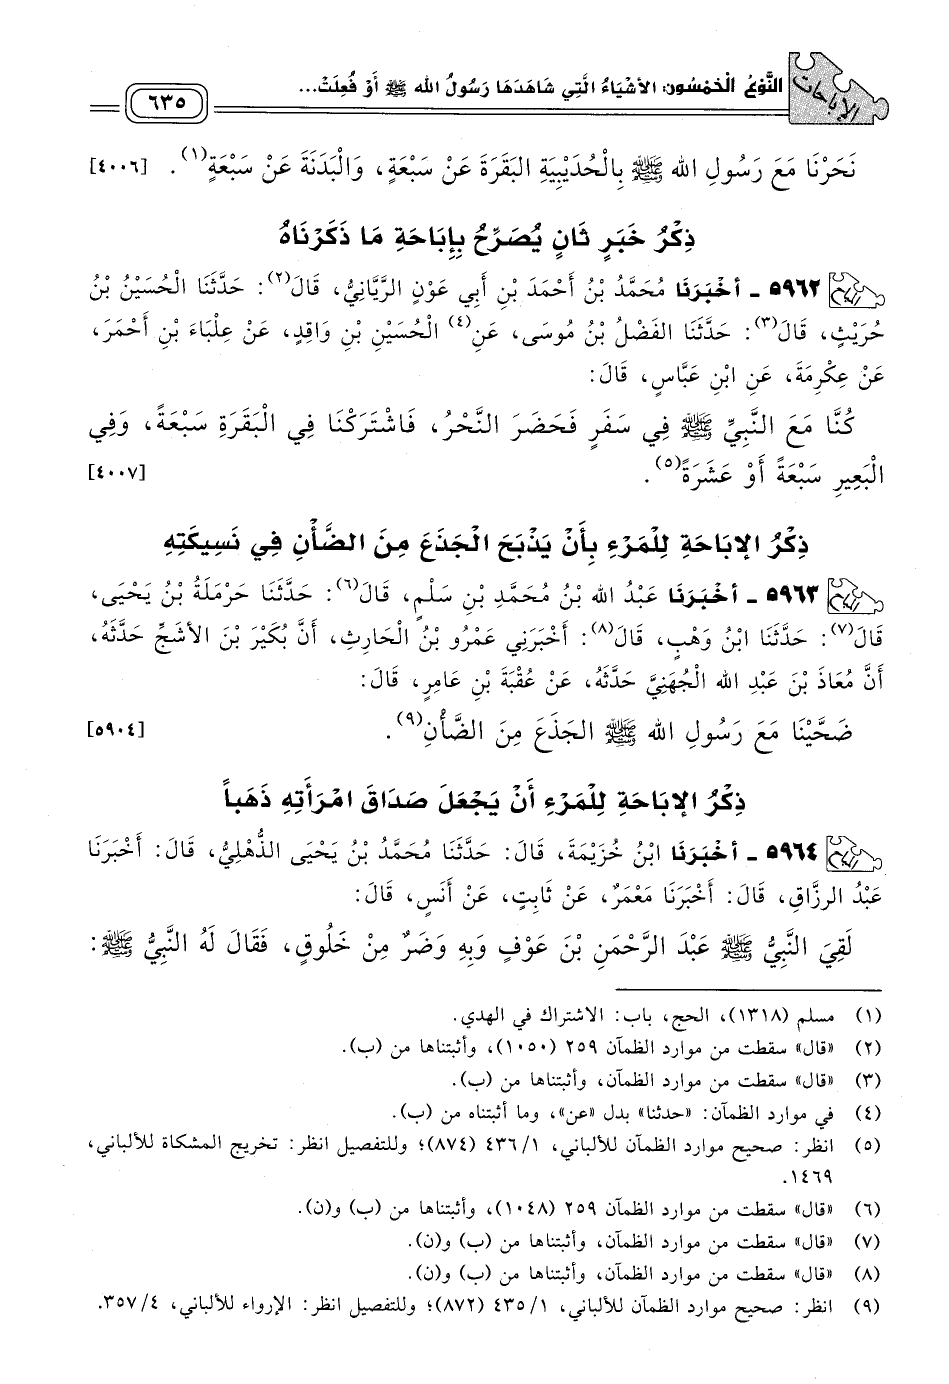 الإباحات
النَّوْعُ الْخَمْسُون: الأَشْيَاءُ الَّتِي شَاهَدَهَا رَسُولُ الله ﷺ أَوْ فُعِلَتْ...
٦٣٥
نَحَرْنَا مَعَ رَسُولِ الله ﷺ بِالْحُدَيْبِيَةِ البَقَرَةَ عَنْ سَبْعَةٍ، وَالْبَدَنَةَ عَنْ سَبْعَةٍ(١). [٤٠٠٦]
ذِكْرُ خَبَرٍ ثَانٍ يُصَرِّحُ بِإِبَاحَةِ مَا ذَكَرْنَاهُ
٥٩٦٢ - أَخْبَرَنَا مُحَمَّدُ بْنُ أَحْمَدَ بْنِ أَبِي عَوْنٍ الرَّيَّانِيُّ، قَالَ(٢): حَدَّثَنَا الْحُسَيْنُ بْنُ
حُرَيْثٍ، قَالَ(٣): حَدَّثَنَا الفَضْلُ بْنُ مُوسَى، عَنِ(٤) الْحُسَيْنِ بْنِ وَاقِدٍ، عَنْ عِلْبَاءَ بْنِ أَحْمَرَ،
عَنْ عِكْرِمَةَ، عَنِ ابْنِ عَبَّاسٍ، قَالَ:
كُنَّا مَعَ النَّبِيِّ ﷺ فِي سَفَرٍ فَحَضَرَ النَّحْرُ، فَاشْتَرَكْنَا فِي الْبَقَرَةِ سَبْعَةً، وَفِي
الْبَعِيرِ سَبْعَةً أَوْ عَشَرَةً(٥). [٤٠٠٧]
ذِكْرُ الإِبَاحَةِ لِلْمَرْءِ بِأَنْ يَذْبَحَ الْجَذَعَ مِنَ الضَّأْنِ فِي نَسِيكَتِهِ
٥٩٦٣ - أَخْبَرَنَا عَبْدُ الله بْنُ مُحَمَّدِ بْنِ سَلْمٍ، قَالَ(٦): حَدَّثَنَا حَرْمَلَةُ بْنُ يَحْيَى،
قَالَ(٧): حَدَّثَنَا ابْنُ وَهْبٍ، قَالَ(٨): أَخْبَرَنِي عَمْرُو بْنُ الْحَارِثِ، أَنَّ بُكَيْرَ بْنَ الأَشَجِّ حَدَّثَهُ،
أَنَّ مُعَاذَ بْنَ عَبْدِ الله الْجُهَنِيَّ حَدَّثَهُ، عَنْ عُقْبَةَ بْنِ عَامِرٍ، قَالَ:
ضَحَّيْنَا مَعَ رَسُولِ الله ﷺ الْجَذَعَ مِنَ الضَّأْنِ(٩). [٥٩٠٤]
ذِكْرُ الإِبَاحَةِ لِلْمَرْءِ أَنْ يَجْعَلَ صَدَاقَ امْرَأَتِهِ ذَهَباً
٥٩٦٤ - أَخْبَرَنَا ابْنُ خُزَيْمَةَ، قَالَ: حَدَّثَنَا مُحَمَّدُ بْنُ يَحْيَى الذُّهْلِيُّ، قَالَ: أَخْبَرَنَا
عَبْدُ الرزَّاقِ، قَالَ: أَخْبَرَنَا مَعْمَرٌ، عَنْ ثَابِتٍ، عَنْ أَنَسٍ، قَالَ:
لَقِيَ النَّبِيُّ ﷺ عَبْدَ الرَّحْمَنِ بْنَ عَوْفٍ وَبِهِ وَضَرٌ مِنْ خَلُوقٍ، فَقَالَ لَهُ النَّبِيُّ ﷺ:
(١) مسلم (١٣١٨)، الحج، باب: الاشتراك في الهدي.
(٢) «قال» سقطت من موارد الظمآن ٢٥٩ (١٠٥٠)، وأثبتناها من (ب).
(٣) «قال» سقطت من موارد الظمآن، وأثبتناها من (ب).
(٤) في موارد الظمآن: «حدثنا» بدل «عن»، وما أثبتناه من (ب).
(٥) انظر: صحيح موارد الظمآن للألباني، ٤٣٦/١ (٨٧٤)؛ وللتفصيل انظر: تخريج المشكاة للألباني،
١٤٦٩.
(٦) «قال» سقطت من موارد الظمآن ٢٥٩ (١٠٤٨)، وأثبتناها من (ب) و(ن).
(٧) «قال» سقطت من موارد الظمآن، وأثبتناها من (ب) و(ن).
(٨) «قال» سقطت من موارد الظمآن، وأثبتناها من (ب) و(ن).
(٩) انظر: صحيح موارد الظمآن للألباني، ٤٣٥/١ (٨٧٢)؛ وللتفصيل انظر: الإرواء للألباني، ٣٥٧/٤.